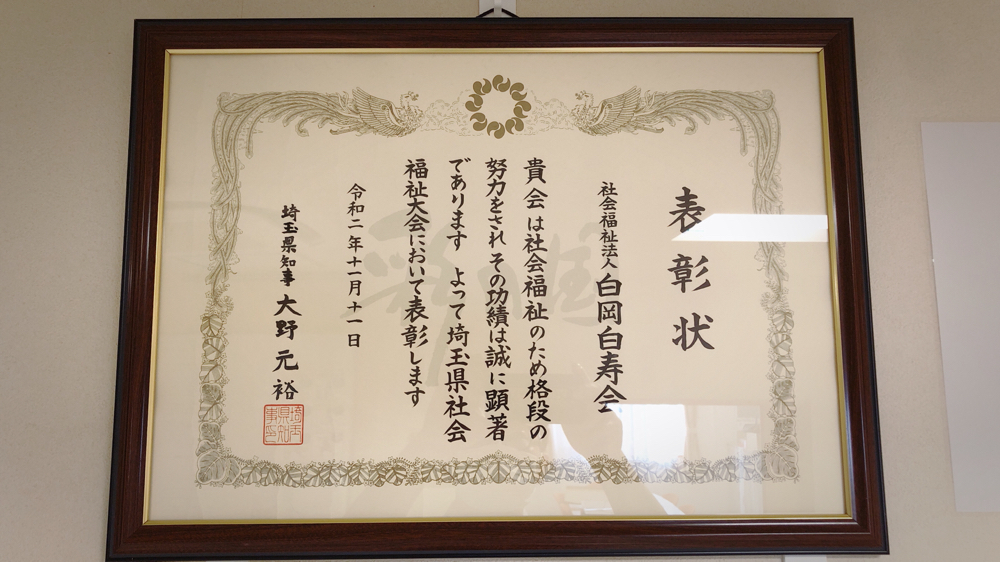 表彰状
社会福祉法人 白岡白寿会
貴会は社会福祉のため格段の
努力をされ その功績は誠に顕著
であります よって埼玉県社会
福祉大会において表彰します
令和二年十一月十一日
埼玉県知事 大野元裕
埼玉県知事印